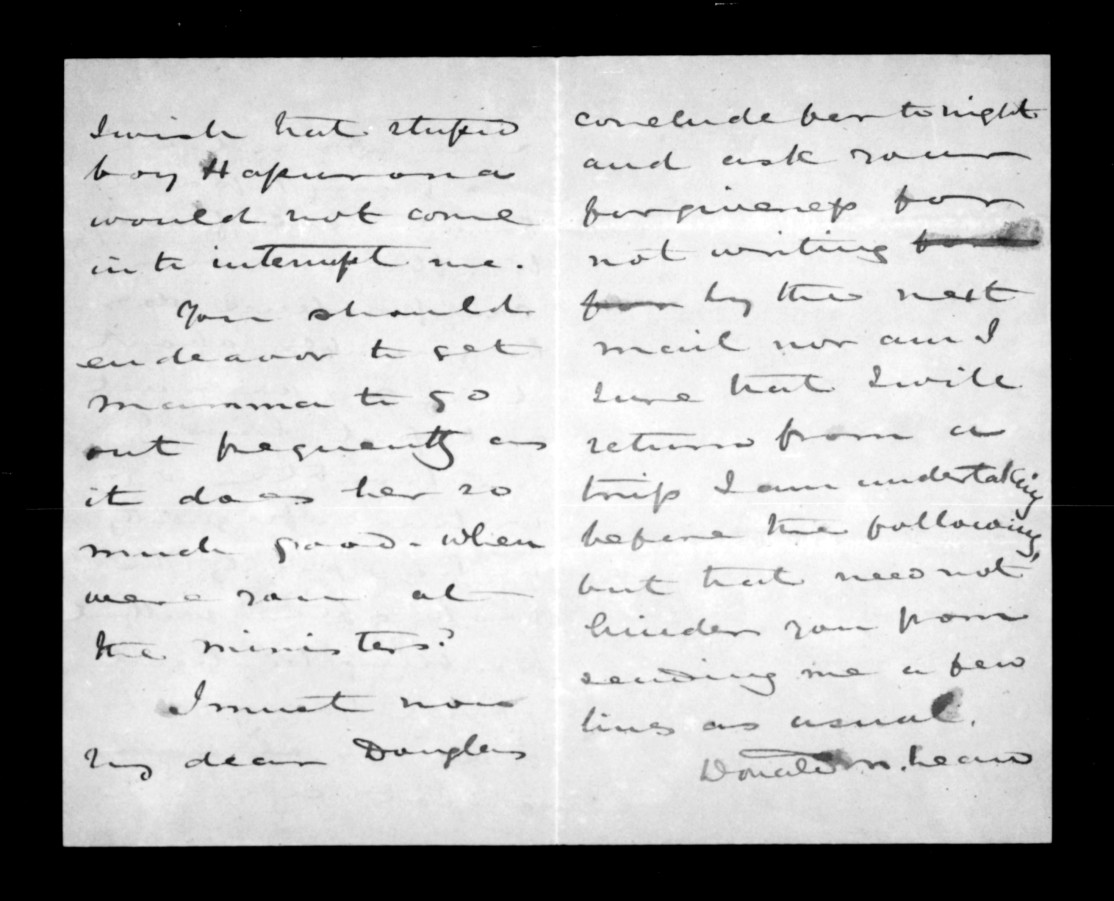 I wish that stupid
boy Hapurona
would not come
in to interrupt me.
You should
endeavor to get
Mamma to go
out frequently as
it does her so
much good. When
were you at
the ministers?
I must now
my dear Douglas
conclude for to night
and ask your
forgiveness for
not writing
by the next
mail nor am I
sure that I will
return from a
trip I am undertaking
before the following,
but that need not
hinder you from
sending me a few
lines as usual.
Donald McLean